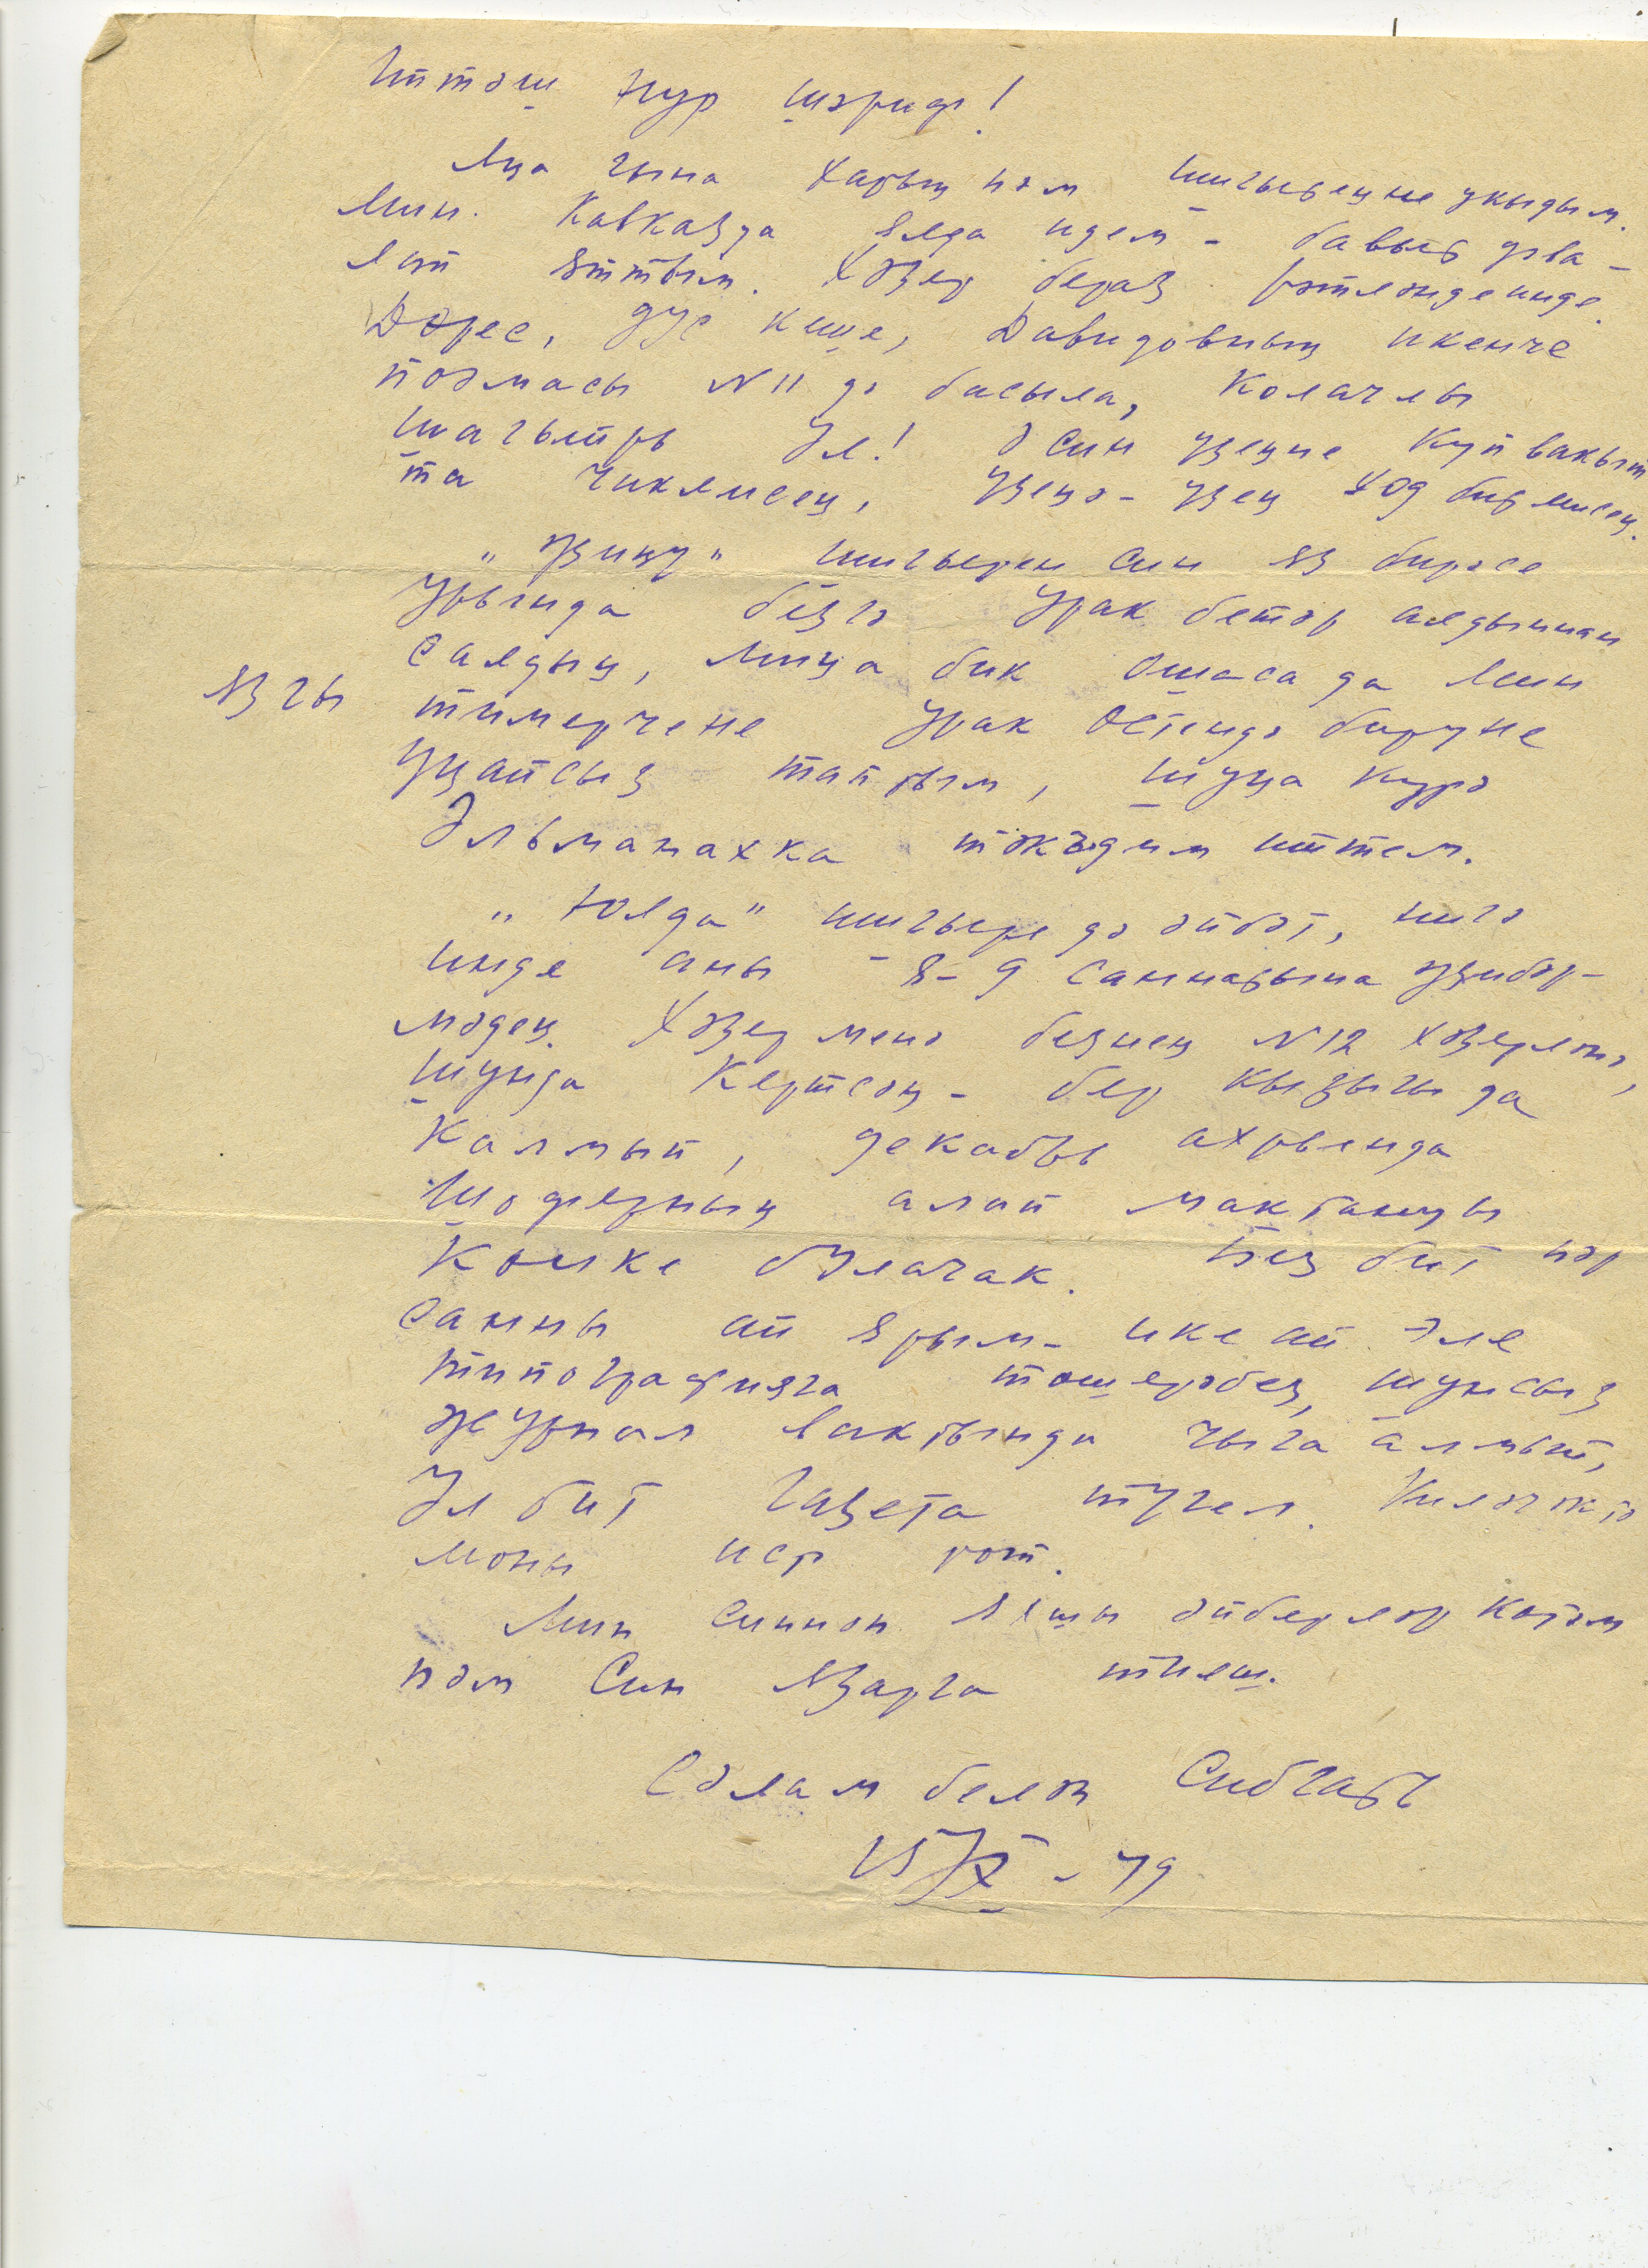 Иптәш Нур Шәрифә!
Яңа гына хатың һәм шигыреңне укыдым.
Мин Кавказда ялда идем - бавыр дәва-
лап яттым. Хәзер бераз рәтләнде инде.
Дөрес, дус кеше, Давидовның икенче
поэмасы N 11 дә басыла, колачлы
шагыйрь ул! Ә син үзеңне күп вакыт
та чиклисең, үзеңә-үзең ход бирмисең.
" Җиңү " шигырен син яз бирәсе
урында безгә урак бетәр алдыннан
салдың, миңа бик ошаса да мин
язгы тимерчене урак өстендә бирүне
уңайсыз таптым, шуңа күрә
Әльманахка тәкъдим иттем.
" Юлда" шигыре дә әйбәт, нигә
инде аны 8-9 саннарына җибәр-
мәдең. Хәзер менә безнең N 12 хәзерләнә,
шунда кертсәң - бер кызыгы да
калмый, декабрь ахрында
шоферның алай мактануы
көлке булачак. Без бит һәр
санны ай ярым - ике ай әле
типографиягә төшерәбез, шунсыз
журнал вакытында чыга алмый,
Ул бит газета түгел. Киләчәктә
моны исә тот.
Мин синнән яхшы әйберләр көтәм
һәм син язарга тиеш.
Сәлам белән Сибгать
15/X - 79